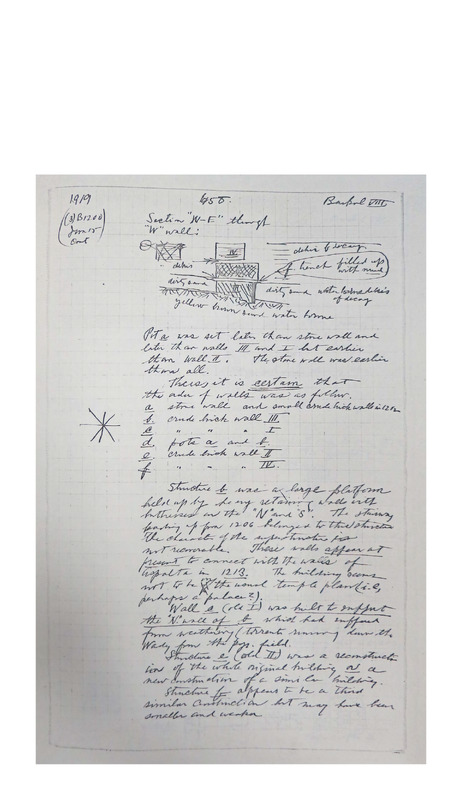 1919 655. Barkal VIII
(1) B1200
from S
Cont
Section "W-E" through
"W" wall:
IV
debris & decay
debris
trench filled up
with mud
dirty sand
dirty sand water borne debris
of decay
yellow brown sand water borne
Pot a was set later than stone wall and
later than walls III and I but earlier
than wall II. The stone wall was earlier
than all.
Thus, it is certain that
the order of walls was as follow.
a stone wall and small crude brick walls in 1200
b. crude brick wall III.
c " " " I
d. pots a and b.
e crude brick wall II
f " " " IV.
Structure b was a large platform
held up by heavy retaining walls with
buttresses on the "N" and "S". The stairway
leading up from 1200 belonged to this structure
The character of the superstructure is
not recoverable. These walls appear at
present to connect with the walls of
Aspalta in 1213. The building seems
not to be of the usual temple plan (i.e.
perhaps a palace?).
Wall c (old I) was built to support
the "N" wall of b which had suffered
from weathering (torrents running down the
Wady from the pyr. field.
Structure e (old II) was a reconstruct-
ion of the whole original building or a
new construction of a similar building.
Structure f appears to be a third
similar construction but may have been
smaller and weaker